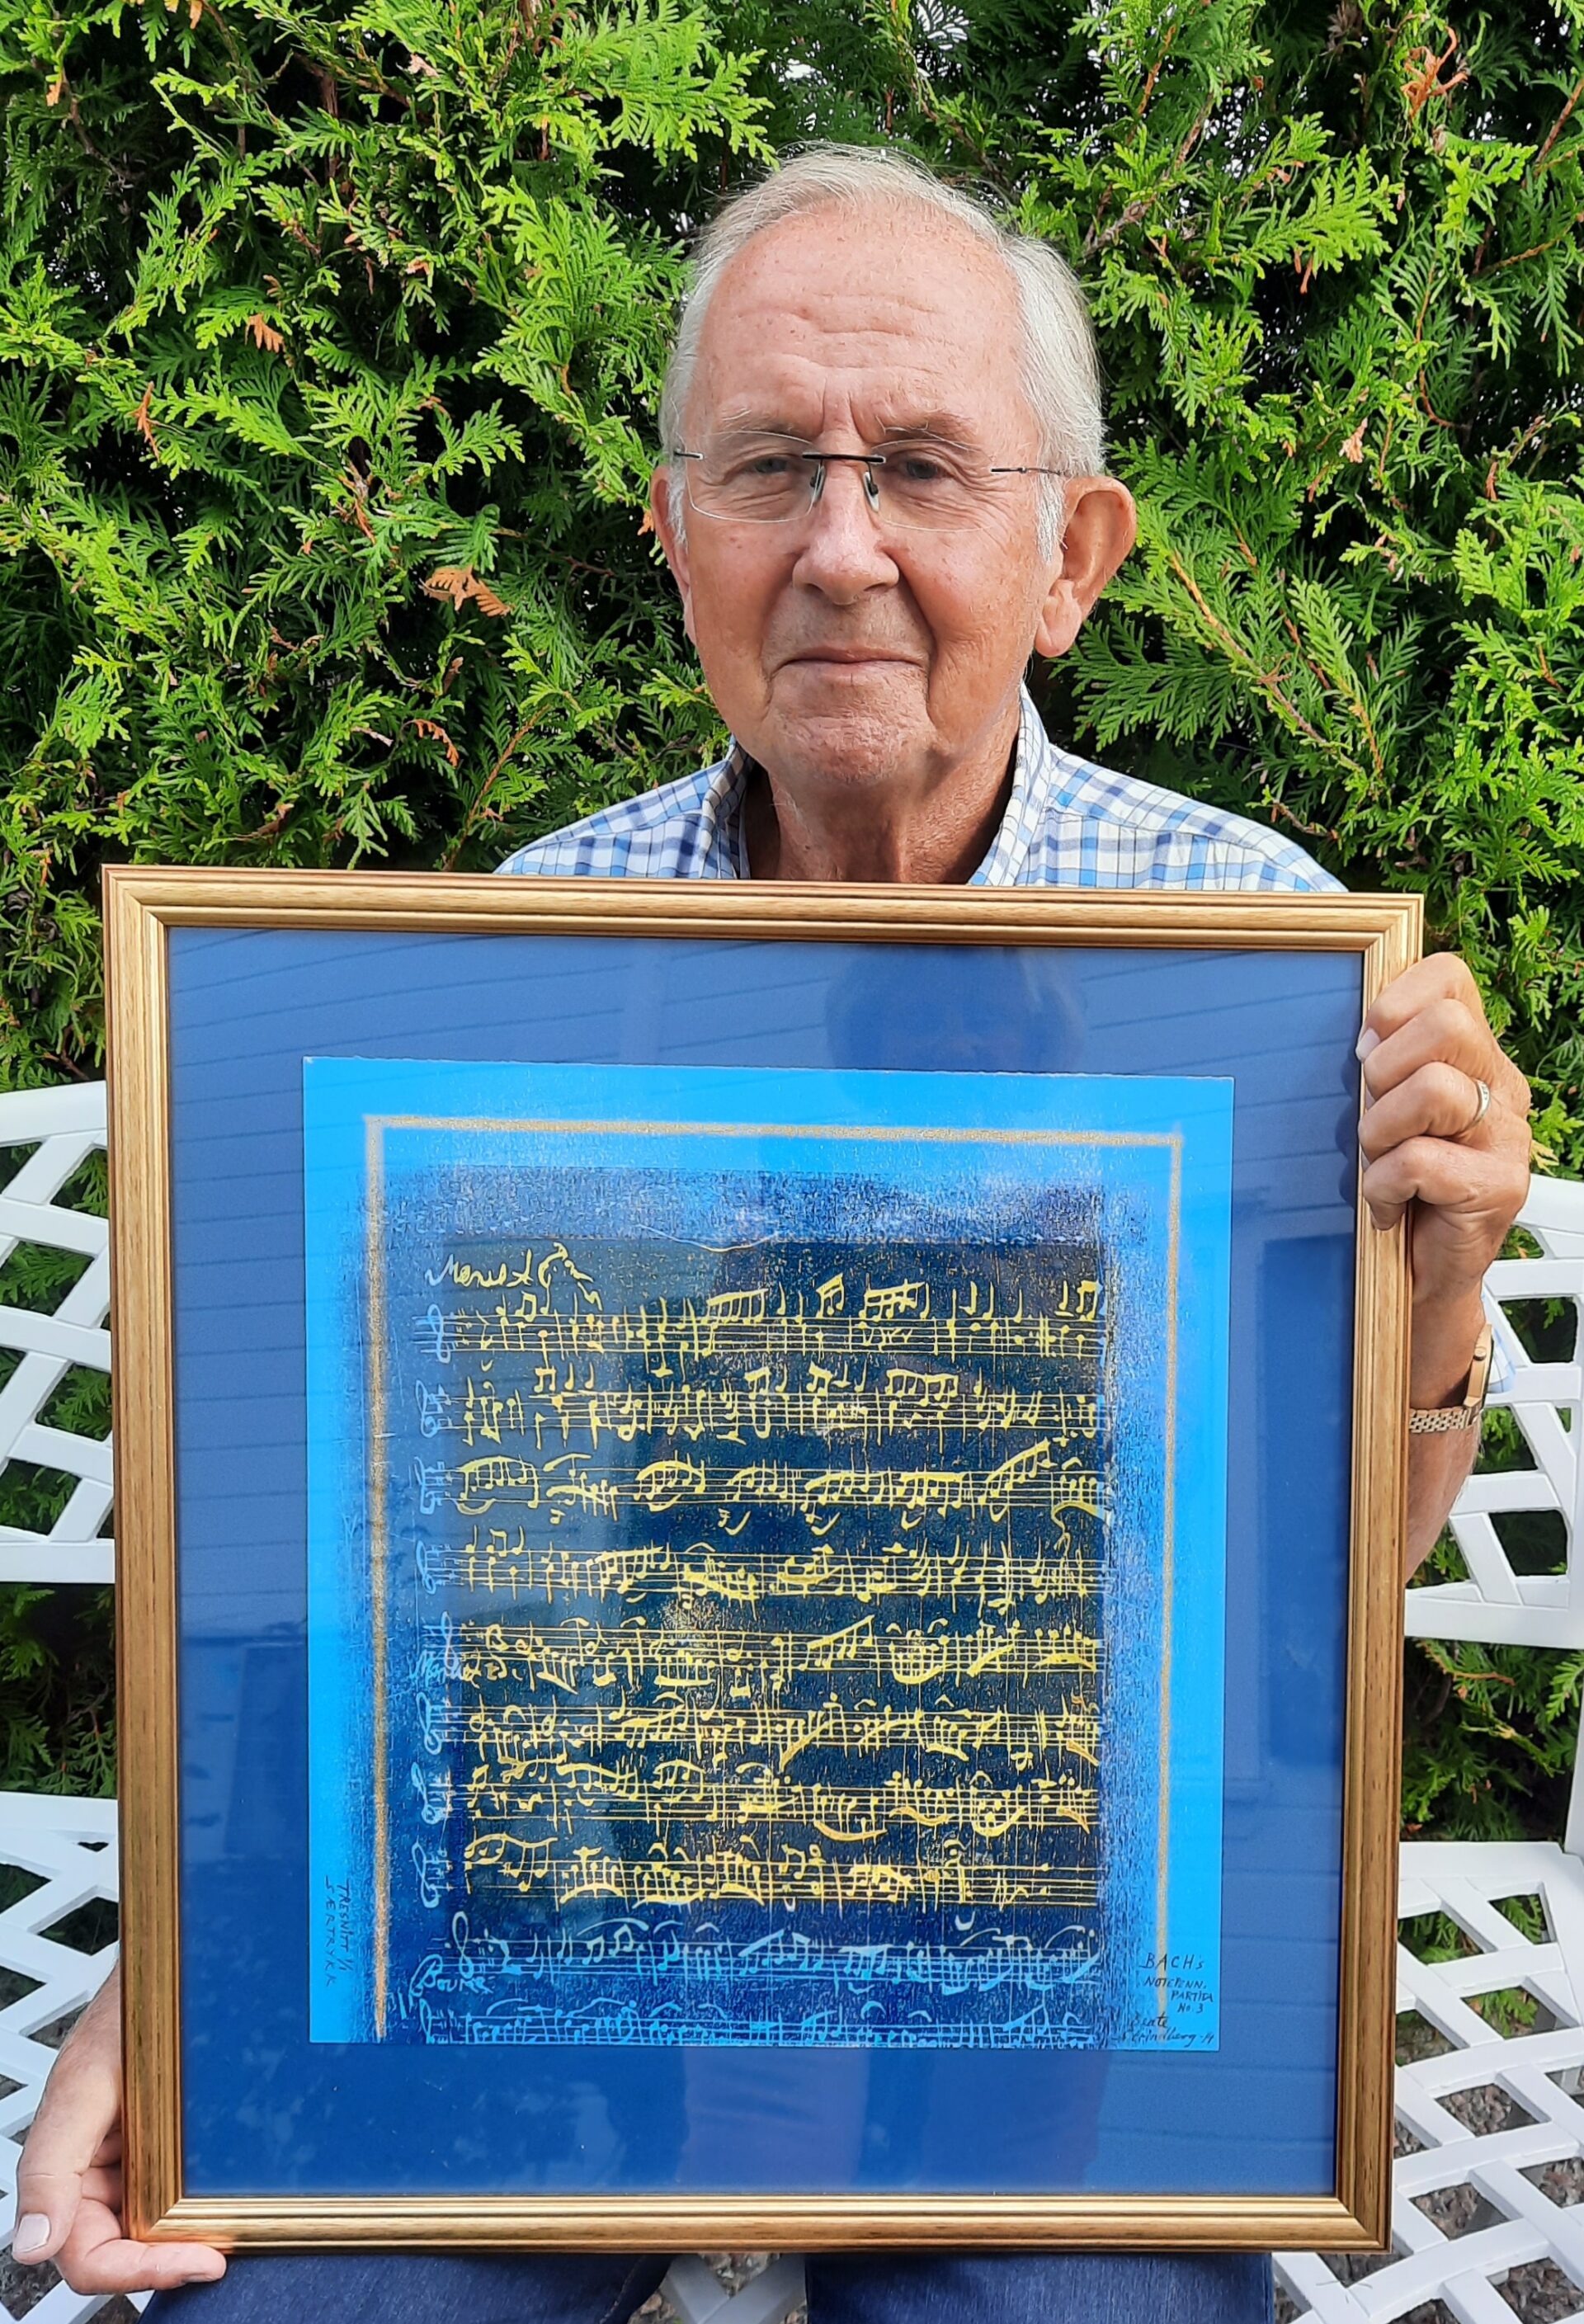 Menuet
Bourée
TRESNITT 1/1
SÆRTRYKK
BACHs
NOTEPENN.
PARTITA
No. 3
Beate